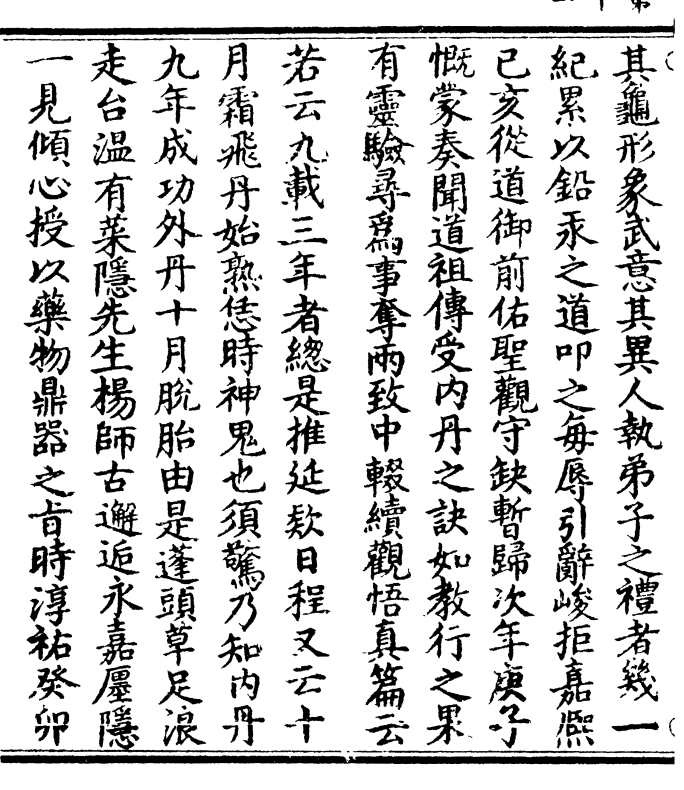 其龜形象武意其異人執弟子之禮者幾一
紀累以鉛汞之道叩之每辱引辭峻拒嘉熈
已亥從道御前佑聖觀守缺暫歸次年庚子
慨蒙奏聞道祖傳受内丹之訣如教行之果
有靈驗尋爲事奪兩致中輟續觀悟真篇云
若云九載三年者總是推延欵日程又云十
月霜飛丹始熟恁時神鬼也須驚乃知内丹
九年成功外丹十月脫胎由是蓬頭草足浪
走台温有葉隱先生楊師古邂逅永嘉㕓隱
一見傾心授以藥物鼎器之旨時淳祐癸卯